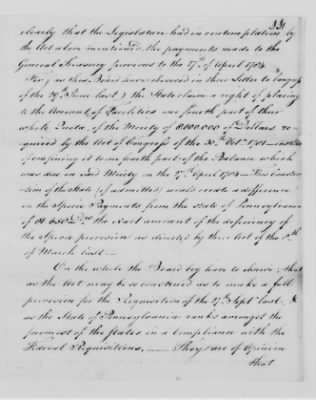 331
clearly that the Legislature had in contemplation by
the Act above mentioned, the payments made to the
General Treasury previous to the 17th of April 1784
For, as this Board have observed in their Letter to Congress
of the 29th June last, the State claim a right of placing
to the Account of Facilities one fourth part of their
whole Quota, of the Moiety of 8,000,000 of Dollars re-
quired by the Act of Congress of the 30th Octr 1781 — instead
of confining it to one fourth part of the Balance which
was due on said Moiety on the 17th April 1784 — This Construc-
tion of the State (if admitted) would create a difference
in the Specie Payments from the State of Pennsylvania
of the exact amount of the deficiency of
the Specie provision as directed by their Act of the 8th
of March last. —
On the whole the Board beg leave to observe, that
as the Act may be so construed as to make a full
provision for the Requisition of the 27th Septr last, &
as the State of Pennsylvania ranks amongst the
foremost of the States in a Compliance with the
Federal Requisitions. — They are of Opinion
that